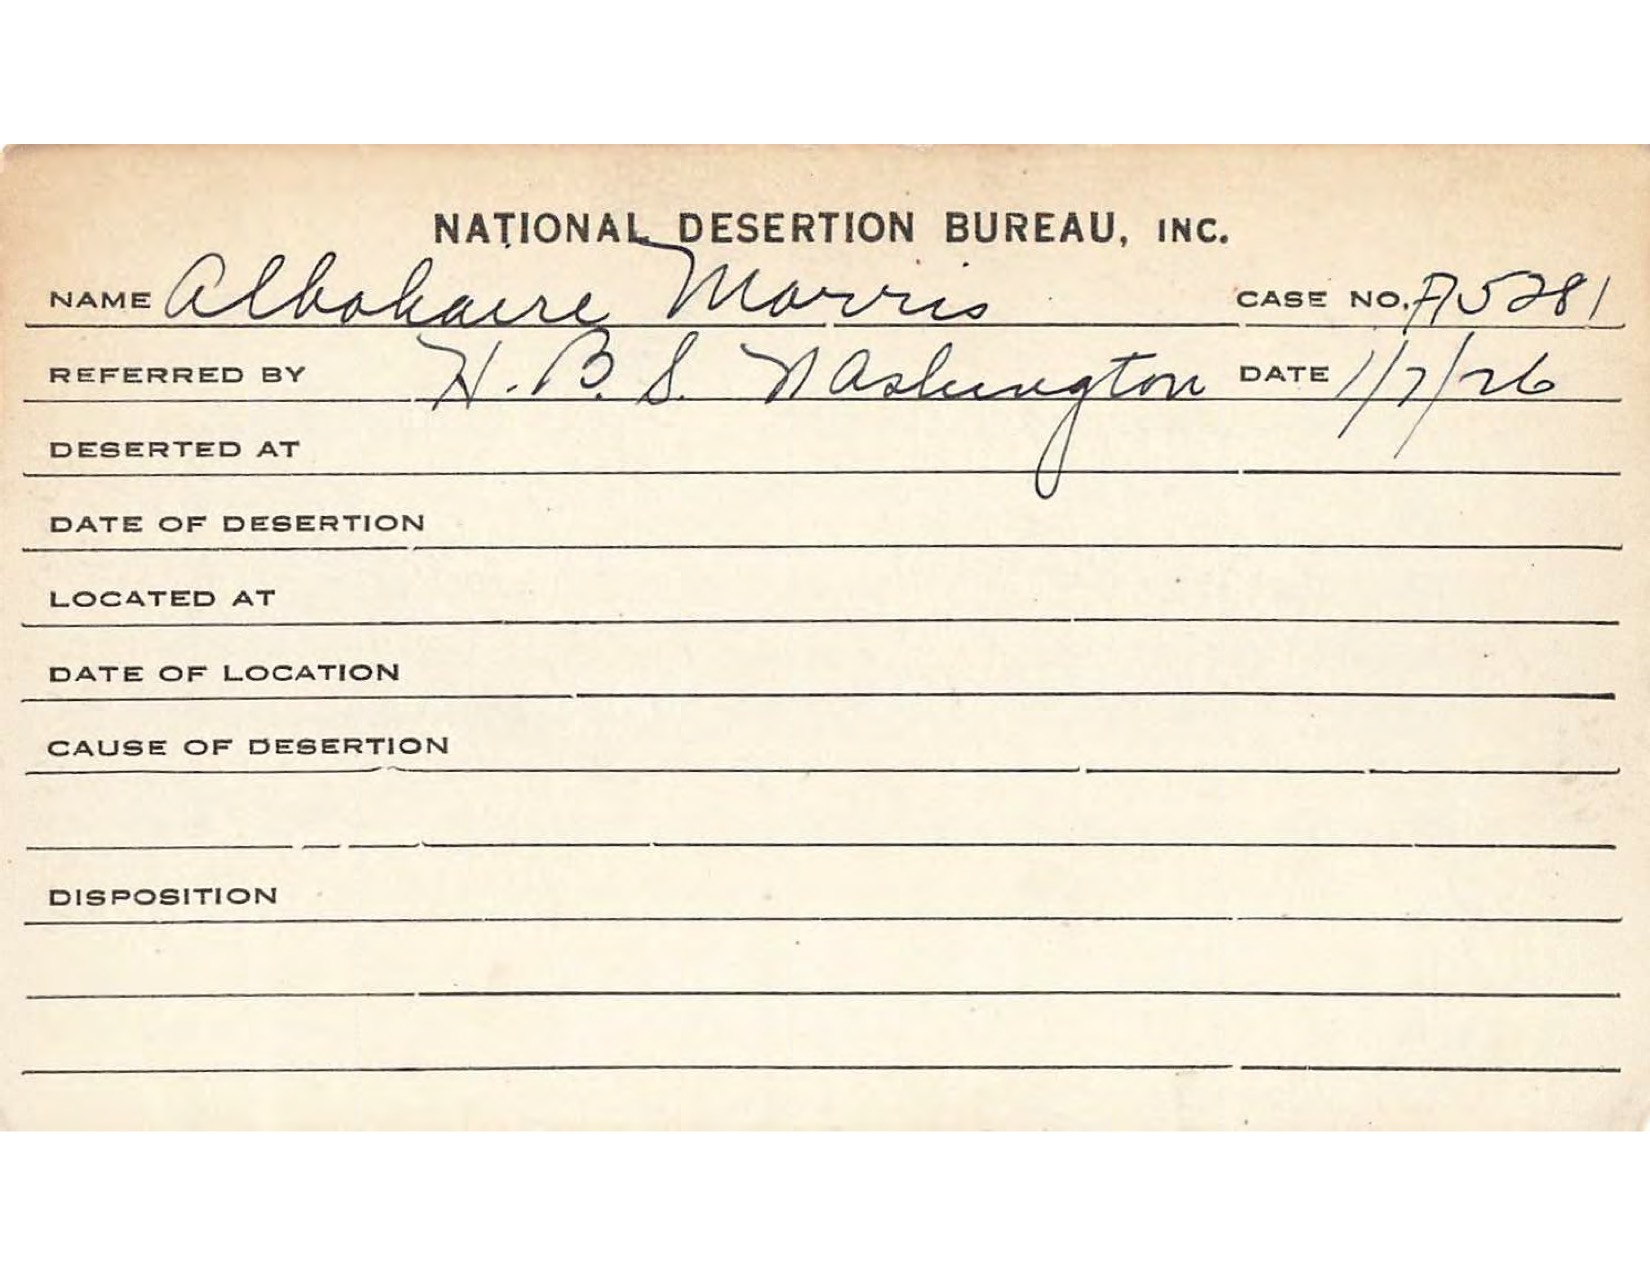 NATIONAL DESERTION BUREAU, INC.
NAME Albohaire Morris CASE NO. A5281
REFERRED BY H. B. S. Washington DATE 1/7/26
DESERTED AT
DATE OF DESERTION
LOCATED AT
DATE OF LOCATION
CAUSE OF DESERTION
DISPOSITION